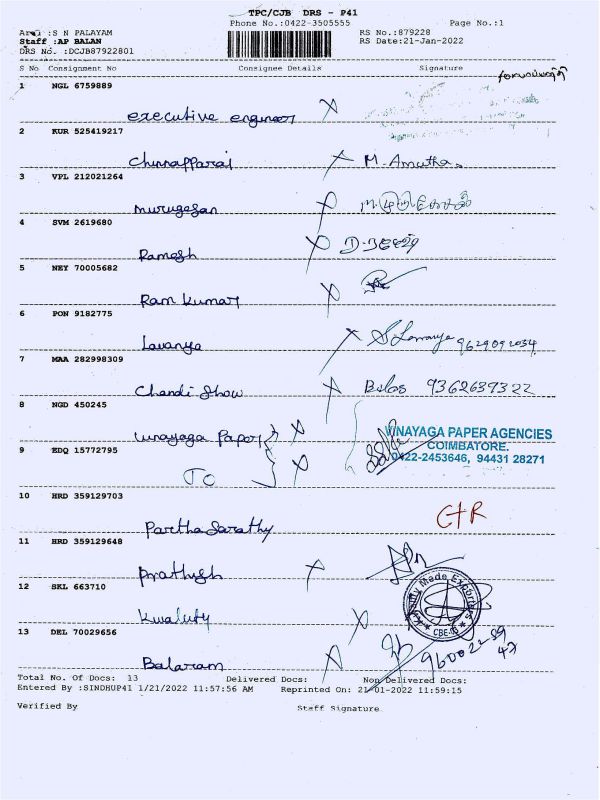 TPC/CJB DRS - P41
Phone No.:0422-3505555 Page No.:1
Area :S N PALAYAM RS No.:879228
Staff :AP BALAN RS Date:21-Jan-2022
DRS No. :DCJB87922801
S No Consignment No Consignee Details Signature
1 NGL 6759889
executive engineer X
2 KUR 525419217
Chinnapparaj X M. Amutha
3 VPL 212021264
murugesan X
4 SVM 2619680
Ramesh X
5 NEY 70005682
Ram Kumar X
6 PON 9182775
Lavanya X S Lavanya 9629092034
7 MAA 282998309
Chandi Show X 9362639322
8 NGD 450245
Vinayaga Paper X VINAYAGA PAPER AGENCIES
COIMBATORE.
9 EDQ 15772795 0422-2453646, 94431 28271
To X
10 HRD 359129703
Partha Sarathy C+R
11 HRD 359129648
Prathysh X
12 SKL 663710
Kwality X Kwality Made Exporters CBE
13 DEL 70029656
Balaram X
Total No. Of Docs: 13 Delivered Docs: Non Delivered Docs:
Entered By :SINDHUP41 1/21/2022 11:57:56 AM Reprinted On: 21-01-2022 11:59:15
Verified By Staff Signature